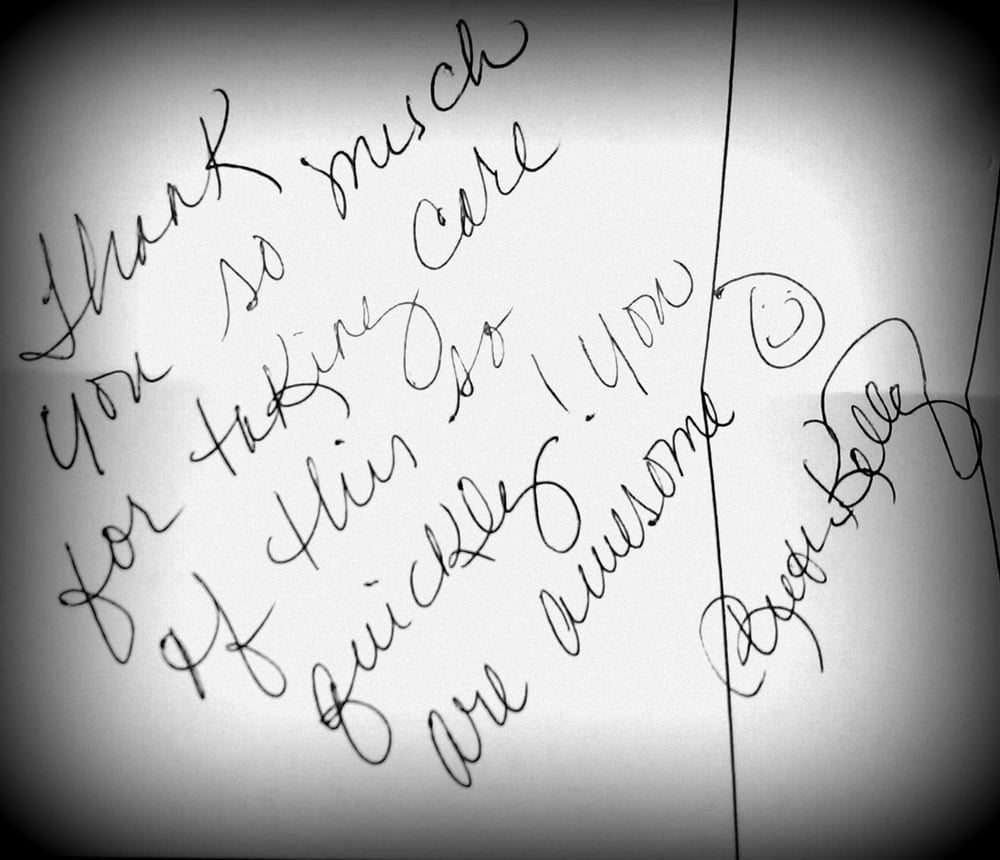 Thank
you so much
for taking care
of this so
quickly! You
are awesome
Kelly